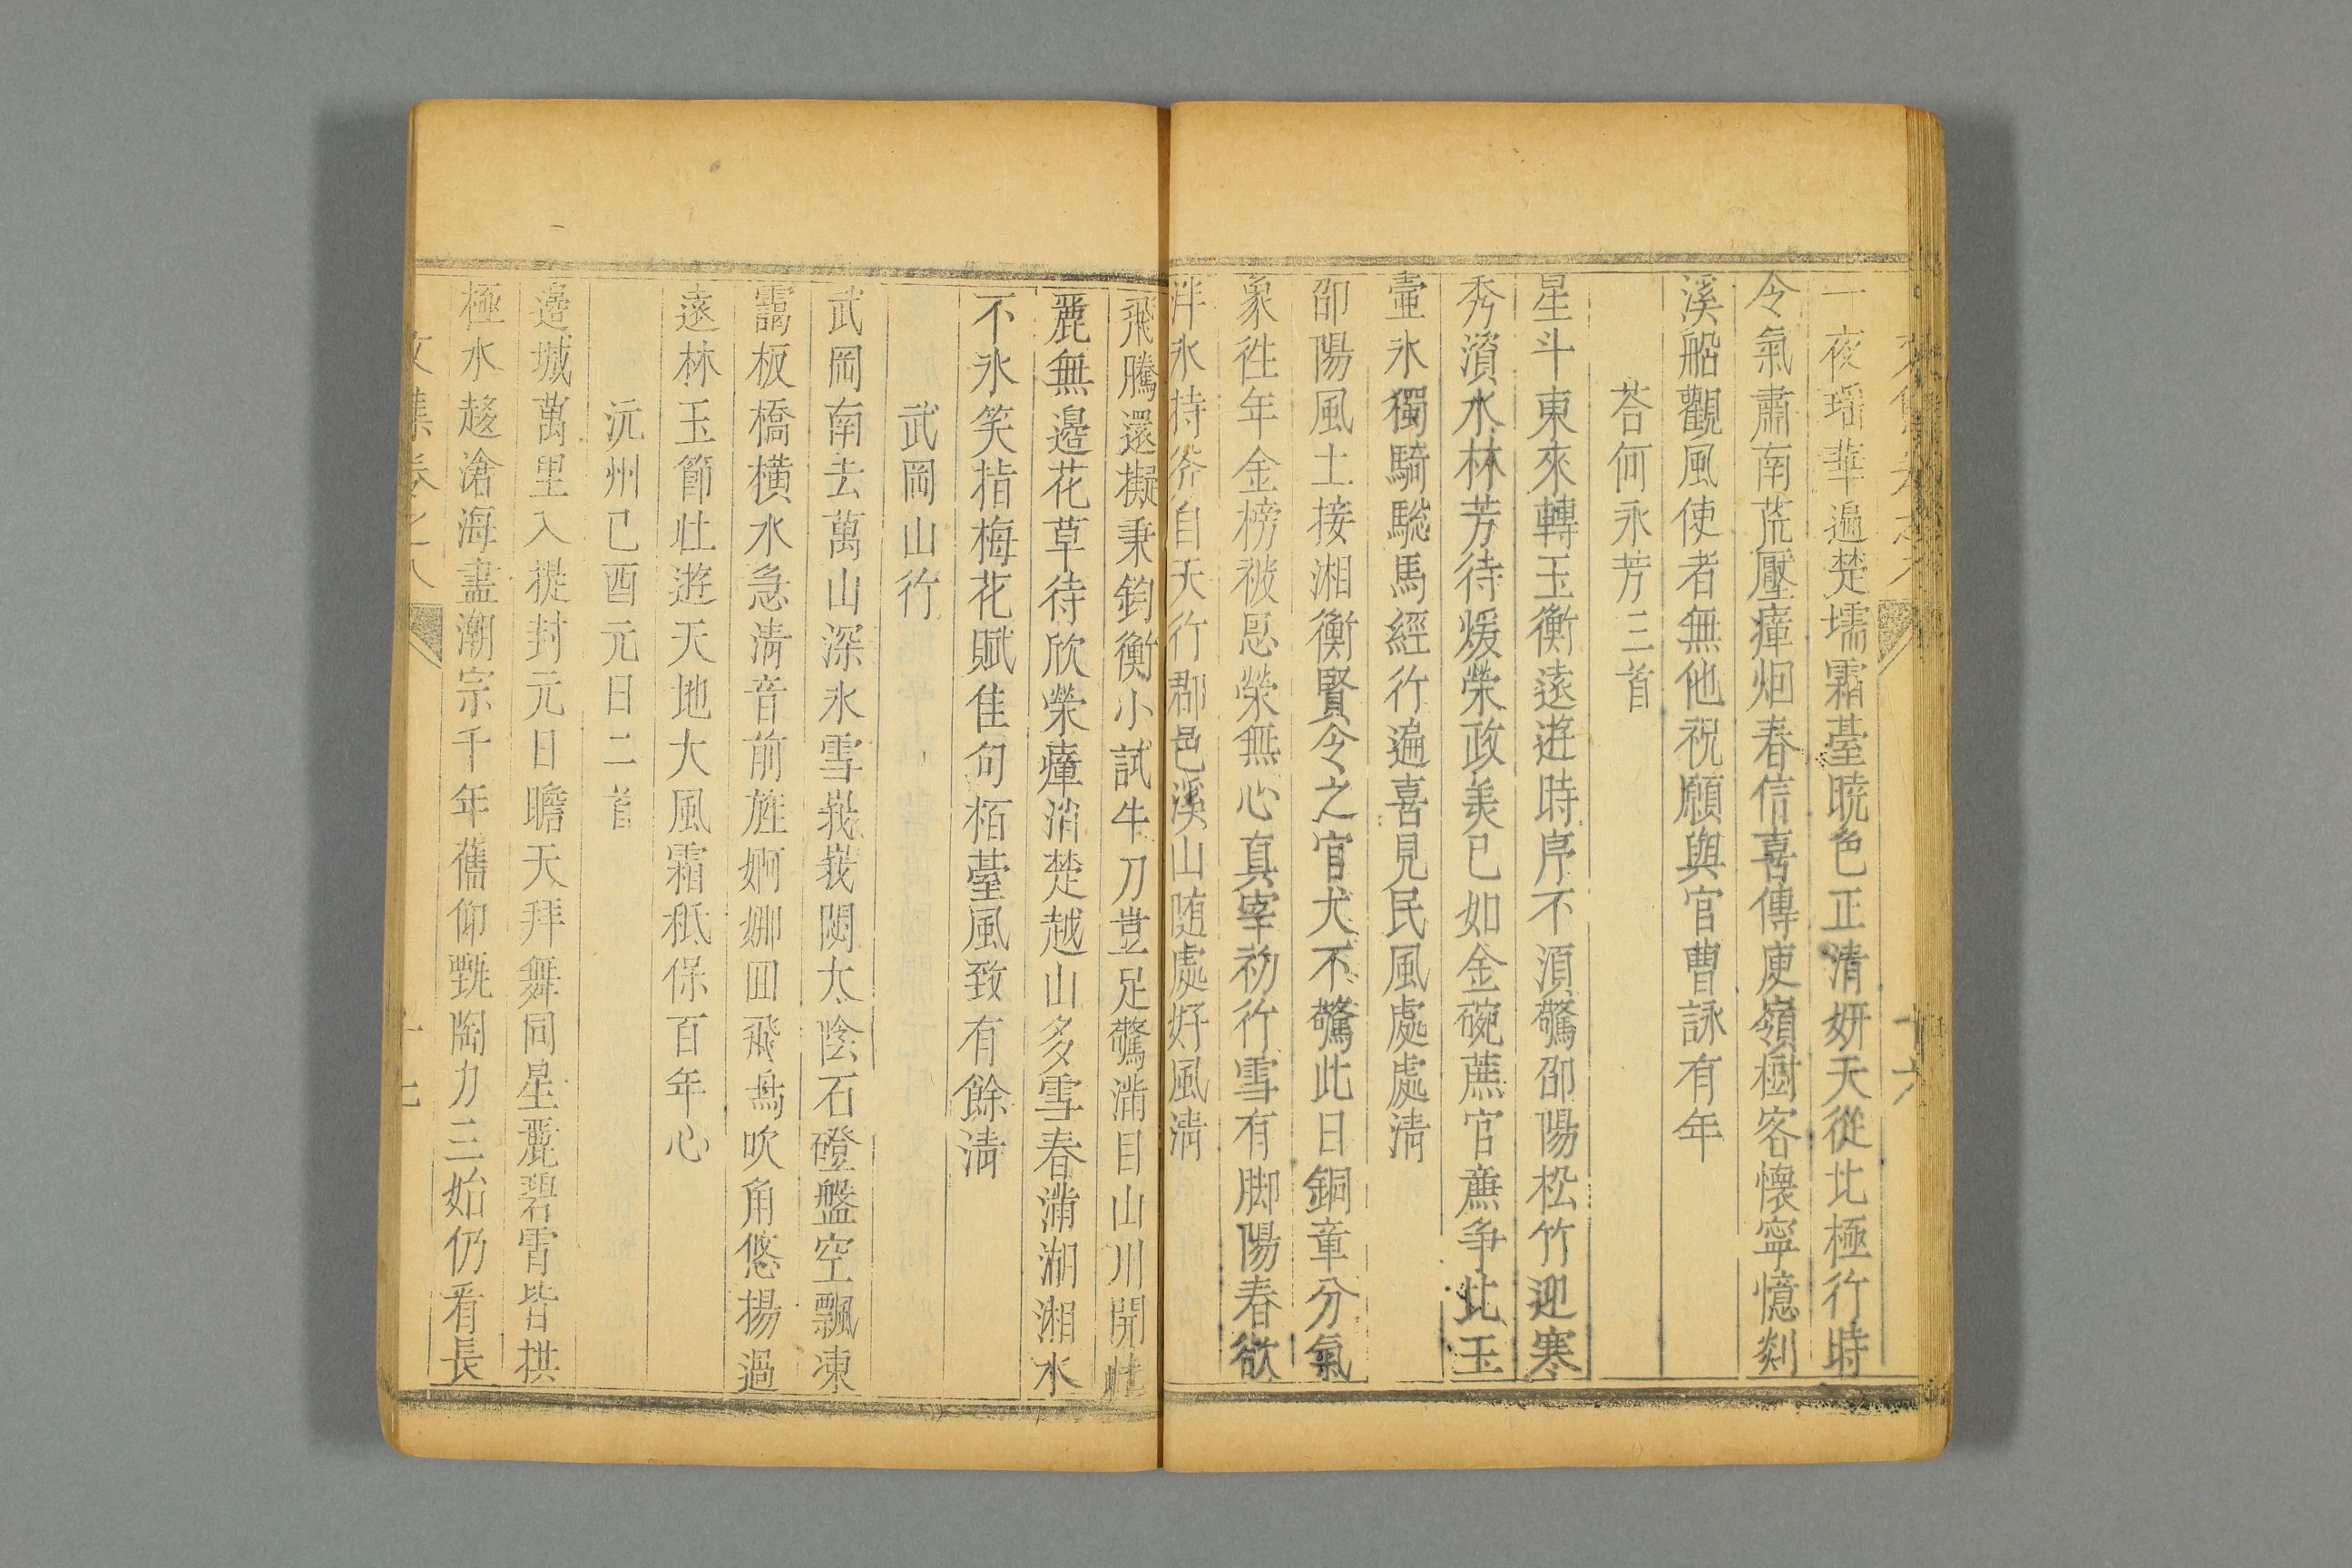 一夜瑶華遍楚壖霜臺曉色正清妍天從北極行時
令氣肅南荒壓瘴烟春信喜傳庾嶺樹客懷寧憶剡
溪船觀風使者無他祝願與官曹詠有年
荅何永芳三首
星斗東來轉玉衡遠遊時序不須驚邵陽松竹迎寒
秀濱水林芳待煖榮政美已如金碗蔗官亷争比玉
壷氷獨騎驄馬經行遍喜見民風處處清
邵陽風土接湘衡賢令之官犬不驚此日銅章分氣
象徃年金榜被恩榮無心真宰初行雪有脚陽春欲
泮氷持斧自天行郡邑溪山随處好風清
飛騰還擬秉鈞衡小試牛刀豈足驚滿目山川開壮
麗無邊花草待欣榮瘴消楚越山多雪春滿湖湘水
不氷笑指梅花賦佳句栢臺風致有餘清
武岡山行
武岡南去萬山深氷雪峩峩閟太陰石磴盤空飄凍
靄板橋横水急清音前旌婀娜回飛鳥吹角悠揚過
遠林玉節壮遊天地大風霜秪保百年心
沅州己酉元日二首
邊城萬里入提封元日瞻天拜舞同星麗碧霄皆拱
極水趍滄海盡潮宗千年舊仰甄陶力三始仍看長
文集卷之八